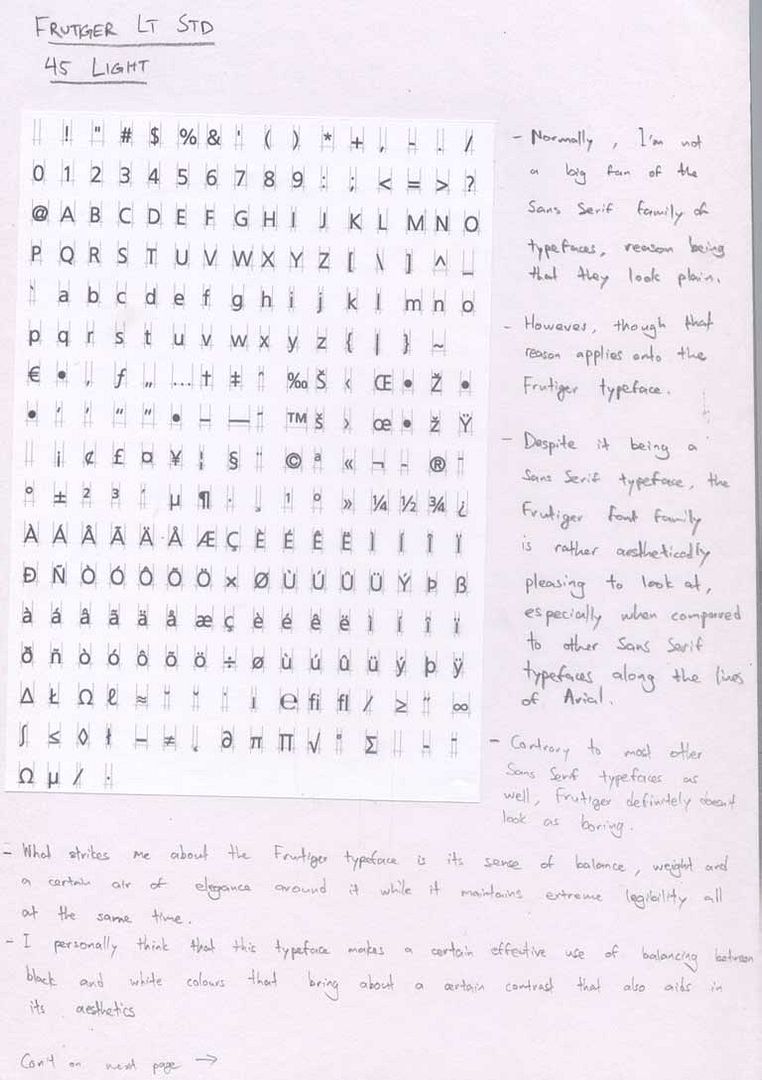 FRUTIGER LT STD
45 LIGHT
! " # $ % & ' ( ) * + , - . /
0 1 2 3 4 5 6 7 8 9 : ; < = > ?
@ A B C D E F G H I J K L M N O
P Q R S T U V W X Y Z [ \ ] ^ _
` a b c d e f g h i j k l m n o
p q r s t u v w x y z { | } ~
€ • ‚ ƒ „ … † ‡ ˆ ‰ Š ‹ Œ • Ž •
• ‘ ’ “ ” • – — ˜ ™ š › œ • ž Ÿ
¡ ¢ £ ¤ ¥ ¦ § ¨ © ª « ¬ - ® ¯
° ± ² ³ ´ µ ¶ · ¸ ¹ º » ¼ ½ ¾ ¿
À Á Â Ã Ä Å Æ Ç È É Ê Ë Ì Í Î Ï
Ð Ñ Ò Ó Ô Õ Ö × Ø Ù Ú Û Ü Ý Þ ß
à á â ã ä å æ ç è é ê ë ì í î ï
ð ñ ò ó ô õ ö ÷ ø ù ú û ü ý þ ÿ
Δ Ł Ω ℓ ≈ ı ℮ fi fl ⁄ ≥ ∞
∫ ≤ ◊ ł − ≠ ˛ ∂ π ∏ √ ˚ ∑ -
Ω μ ⁄ ·
- Normally, I'm not
a big fan of the
Sans Serif family of
typefaces, reason being
that they look plain.
- However, though that
reason applies onto the
Frutiger typeface.
- Despite it being a
Sans Serif typeface, the
Frutiger font family
is rather aesthetically
pleasing to look at,
especially when compared
to other Sans Serif
typefaces along the lines
of Arial.
- Contrary to most other
Sans Serif typefaces as
well, Frutiger definitely doesn't
look as boring.
- What strikes me about the Frutiger typeface is its sense of balance, weight and
a certain air of elegance around it while it maintains extreme legibility all
at the same time.
- I personally think that this typeface makes a certain effective use of balancing between
black and white colours that bring about a certain contrast that also aids in
its aesthetics
Con't on next page →